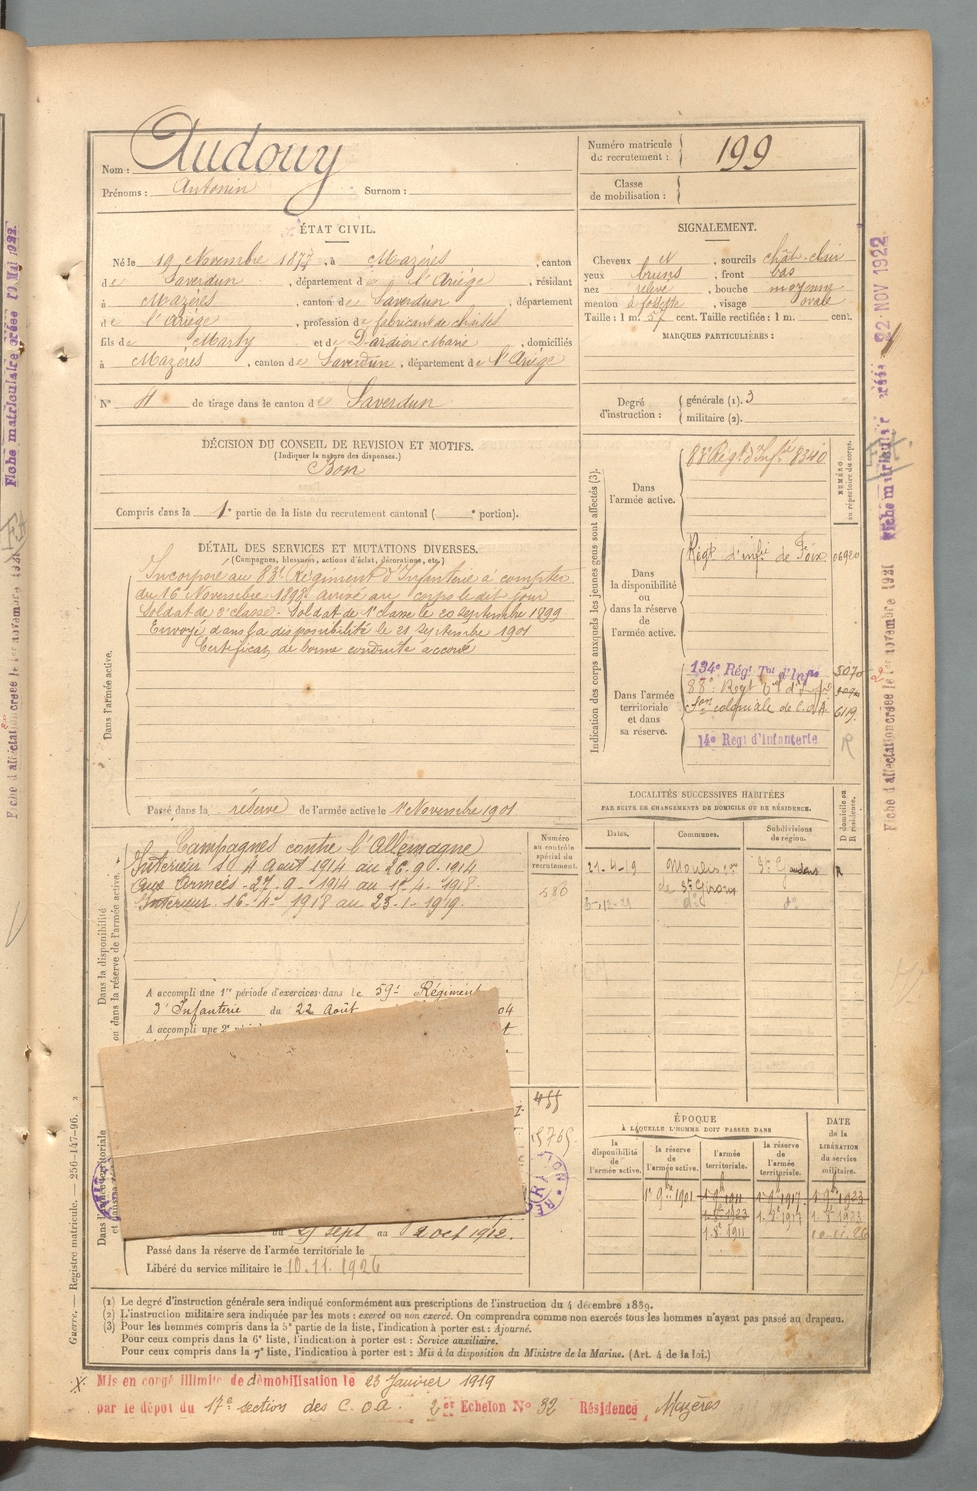 Nom : Audouy
Prénoms : Antonin Surnom :
Numéro matricule de recrutement : 199
Classe de mobilisation :
ÉTAT CIVIL.
Né le 19 Novembre 1877, à Mazères, canton
de Saverdun, département de l'Ariège, résidant
à Mazères, canton de Saverdun, département
de l'Ariège, profession de fabricant de chaises
fils de Marty et de Dardier Marie, domiciliés
à Mazères, canton de Saverdun, département de l'Ariège
N° de tirage dans le canton de Saverdun
SIGNALEMENT.
Cheveux et sourcils chât-clair
yeux bruns, front bas
nez relevé, bouche moyenne
menton à fossette, visage ovale
Taille : 1 m. 57 cent. Taille rectifiée : 1 m. cent.
MARQUES PARTICULIÈRES :
Degré d'instruction : générale (1). 3
militaire (2).
DÉCISION DU CONSEIL DE REVISION ET MOTIFS.
(Indiquer la nature des dispenses.)
Bon
Compris dans la 1e partie de la liste du recrutement cantonal ( e portion).
DÉTAIL DES SERVICES ET MUTATIONS DIVERSES.
(Campagnes, blessures, actions d'éclat, décorations, etc.)
Dans l'armée active.
Incorporé au 83e Régiment d'Infanterie à compter
du 16 Novembre 1898 arrivé au corps le dit jour
Soldat de 2e classe. Soldat de 1e classe le 20 septembre 1899
Envoyé dans la disponibilité le 21 Septembre 1901
Certificat de bonne conduite accordé
Passé dans la réserve de l'armée active le 1er Novembre 1901
Indication des corps auxquels les jeunes gens sont affectés (3).
NUMÉRO au répertoire du corps.
Dans l'armée active.
83e Régt d'Infie 8340
Dans la disponibilité ou dans la réserve de l'armée active.
Régt d'infie de Foix 06920
Dans l'armée territoriale et dans sa réserve.
134e Régt Tal d'Infie 5070
14e Regt d'Infanterie
6119
R
LOCALITÉS SUCCESSIVES HABITÉES
PAR SUITE DE CHANGEMENTS DE DOMICILE OU DE RÉSIDENCE.
Dates. Communes. Subdivisions de région. D domicile ou R résidence.
21-4-19 Moulis con de St Girons St Gaudens R
do do
Dans la disponibilité ou dans la réserve de l'armée active.
Numéro au contrôle spécial du recrutement.
Campagnes contre l'Allemagne
Intérieur du 4 Août 1914 au 26-9-1914
Aux Armées - 27-9-1914 au 15-4-1918.
Intérieur. 16-4-1918 au 23-1-1919.
A accompli une 1re période d'exercices dans le 59e Régiment
d'Infanterie du 22 Août
A accompli une 2e
455
ÉPOQUE
À LAQUELLE L'HOMME DOIT PASSER DANS
la disponibilité de l'armée active. la réserve de l'armée active. l'armée territoriale. la réserve de l'armée territoriale.
DATE de la LIBÉRATION du service militaire.
1er 9bre 1901 1er 9bre 1911 1er 9bre 1917 1er 9bre 1923
sept au 2 oct 1912.
Passé dans la réserve de l'armée territoriale le
Libéré du service militaire le 10.11.1926
(1) Le degré d'instruction générale sera indiqué conformément aux prescriptions de l'instruction du 4 décembre 1889.
(2) L'instruction militaire sera indiquée par les mots : exercé ou non exercé. On comprendra comme non exercés tous les hommes n'ayant pas passé au drapeau.
(3) Pour les hommes compris dans la 5e partie de la liste, l'indication à porter est : Ajourné.
Pour ceux compris dans la 6e liste, l'indication à porter est : Service auxiliaire.
Pour ceux compris dans la 7e liste, l'indication à porter est : Mis à la disposition du Ministre de la Marine. (Art. 4 de la loi.)
Mis en congé illimité de démobilisation le 23 Janvier 1919
par le dépôt du 17e section des C.O.A. 2er Echelon No 32 Résidence Mazères
Guerre. — Registre matricule. — 256-147-96. 2
Fiche matriculaire créée 19 Mai 1922.
Fiche matriculaire créée 22 NOV 1922
Fiche d'affectation créée le 1er novembre 1921